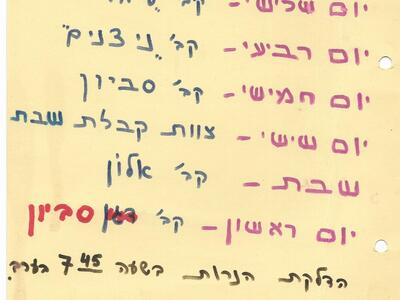 יום שלישי - קב'
יום רביעי - קב' "ניצנים"
יום חמישי - קב' סביון
יום שישי - צוות קבלת שבת
שבת - קב' אלון
יום ראשון - קב' סביון
הדלקת הנרות בשעה 7 45 הערב.